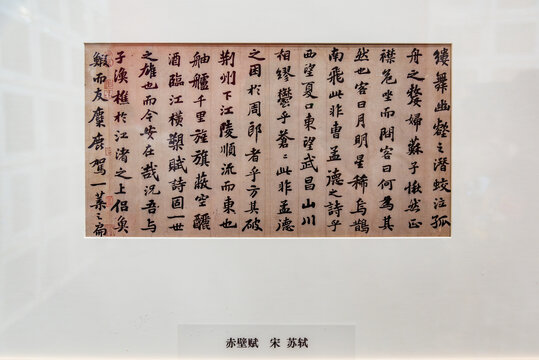 縷舞幽壑之潛蛟泣孤
舟之嫠婦蘇子愀然正
襟危坐而問客曰何為其
然也客曰月明星稀烏鵲
南飛此非曹孟德之詩乎
西望夏口東望武昌山川
相繆鬱乎蒼蒼此非孟德
之困於周郎者乎方其破
荆州下江陵順流而東也
舳艫千里旌旗蔽空釃
酒臨江橫槊賦詩固一世
之雄也而今安在哉況吾與
子漁樵於江渚之上侶魚
鰕而友麋鹿駕一葉之扁
赤壁赋 宋 苏轼